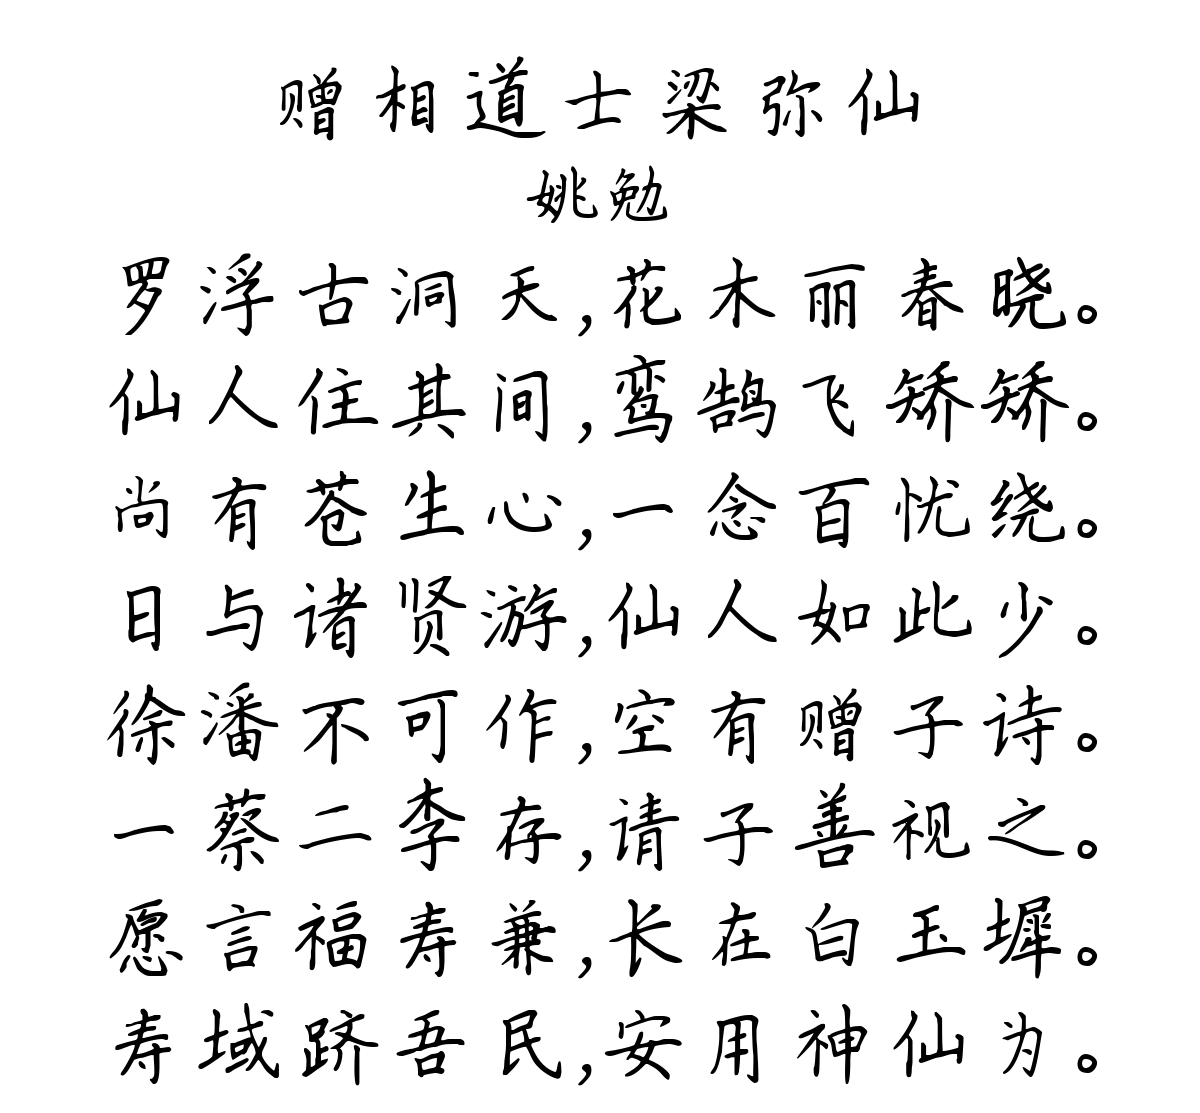 赠相道士梁弥仙
姚勉
罗浮古洞天,花木丽春晓。
仙人住其间,鸾鹄飞矫矫。
尚有苍生心,一念百忧绕。
日与诸贤游,仙人如此少。
徐潘不可作,空有赠子诗。
一蔡二李存,请子善视之。
愿言福寿兼,长在白玉墀。
寿域跻吾民,安用神仙为。